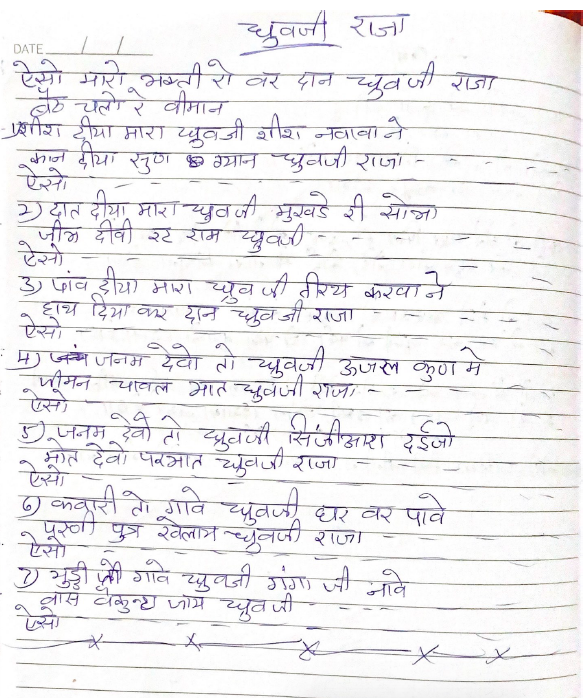 ध्रुवजी राजा
DATE
ऐसो मारो भक्ती रो वर दान ध्रुवजी राजा
बैठ चलो रे वीमान
1) शीश दीया मारा ध्रुवजी शीश नवावा ने
कान दीया सुण ग्यान ध्रुवजी राजा
ऐसो
2) दात दीया मारा ध्रुवजी मुखडे री सोभा
जीभ दीवी रट राम ध्रुवजी
ऐसो
3) पांव दीया मारा ध्रुवजी तीरथ करवा ने
हाथ दिया कर दान ध्रुवजी राजा
ऐसो
4) जनम देवो तो ध्रुवजी ऊजल कुण मे
जीमन चावल भात ध्रुवजी राजा
ऐसो
5) जनम देवो तो ध्रुवजी सिंजीआरा दईजो
मोत देवो परभात ध्रुवजी राजा
ऐसो
6) कवारी तो गावे ध्रुवजी घर वर पावे
परणी पुत्र खेलाय ध्रुवजी राजा
ऐसो
7) बुड्डी गावे ध्रुवजी गंगा जी नावे
वास वैकुन्ठ जाय ध्रुवजी
ऐसो